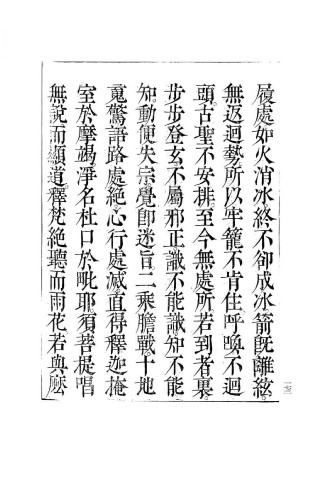 履處如火消冰終不卻成冰箭旣離絃
無返迴勢所以牢籠不肯住呼喚不迴
頭古聖不安排至今無處所若到者裏
步步登玄不屬邪正識不能識知不能
知動便失宗覺卽迷旨二乘膽戰十地
䰟驚語路處絕心行處滅直得釋迦掩
室於摩竭淨名杜口於毗耶須菩提唱
無說而顯道釋梵絕聽而雨花若與麽